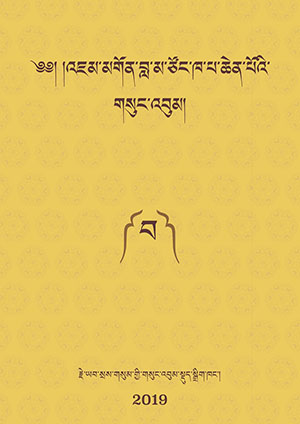 ༄༅། །འཇམ་མགོན་བླ་མ་ཙོང་ཁ་པ་ཆེན་པོའི་
གསུང་འབུམ།
བ
རྗེ་ཡབ་སྲས་གསུམ་གྱི་གསུང་འབུམ་སྡུད་སྒྲིག་ཁང་།
2019